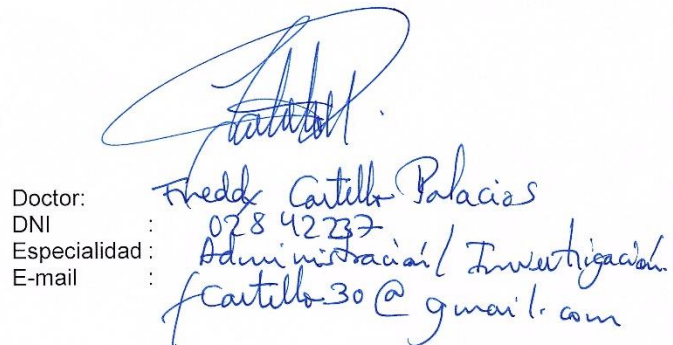 Doctor: Freddy Castillo Palacios
DNI : 02842237
Especialidad : Administración / Investigación
E-mail : fcastillo30@gmail.com